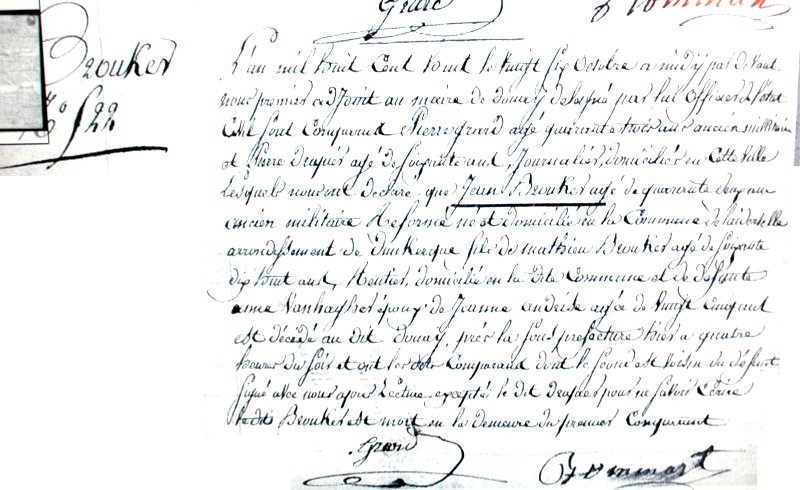 Brouker
N° 522
L'an mil huit Cent huit le vingt six Octobre a midy par devant
nous premier adjoint au maire de douay désigné par lui Officier de l'état
Civil sont Comparus Pierre grard agé quarante trois ans ancien militaire
et Pierre Draguès agé de soixante ans, Journalier, domiciliés en Cette ville
Lesquels nous ont declaré que Jean Brouker agé de quarante deux ans
ancien militaire Reformé né et domicilié en la Commune de
arrondissement de Dunkerque fils de mathieu Brouker agé de soixante
dix huit ans, Rentier, domicilié en la dite Commune et de défunte
anne Vanhagher époux de Jeanne andrise agée de vingt cinq ans
est décédé au dit Douay, près la sous prefecture hier a quatre
heures du soir et ont les Comparans dont le second est voisin du défunt
signé avec nous après Lecture excepté le dit Draguès pour ne savoir écrire
le dit Brouker est mort en la demeure du premier Comparant
Grard
Bommart